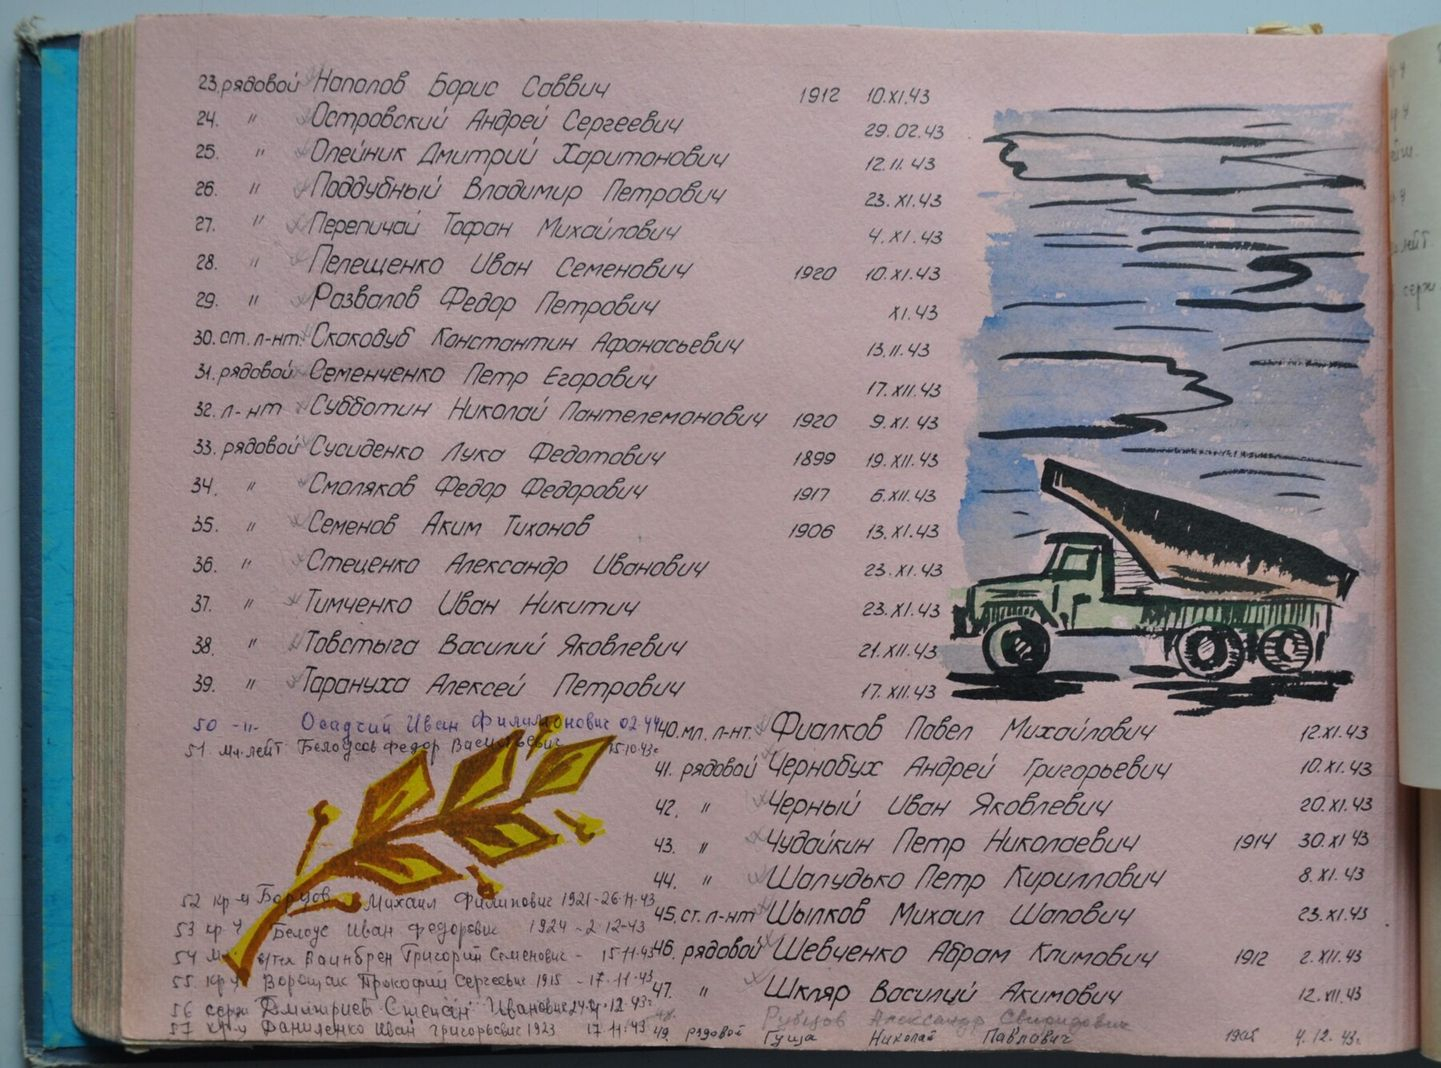 23. рядовой Наполов Борис Саввич 1912 10.XI.43
24. " Островский Андрей Сергеевич 29.02.43
25. " Олейник Дмитрий Харитонович 12.11.43
26. " Поддубный Владимир Петрович 23.XI.43
27. " Перепичай Тофан Михайлович 4.XI.43
28. " Пелещенко Иван Семенович 1920 10.XI.43
29. " Развалов Федор Петрович XI.43
30. ст. л-нт. Скакодуб Константин Афанасьевич 13.11.43
31. рядовой Семенченко Петр Егорович 17.XII.43
32. л-нт Субботин Николай Пантелемонович 1920 9.XI.43
33. рядовой Сусиденко Лука Федотович 1899 19.XII.43
34. " Смоляков Федор Федорович 1917 6.XII.43
35. " Семенов Аким Тихонов 1906 13.XI.43
36. " Стеценко Александр Иванович 23.XI.43
37. " Тимченко Иван Никитич 23.XI.43
38. " Товстыга Василий Яковлевич 21.XII.43
39. " Тарануха Алексей Петрович 17.XII.43
50 -"- Осадчий Иван Филимонович 02.44
51. мл. лейт. Белоусов Федор Васильевич 15.10.43г
40. мл. л-нт. Фиалков Павел Михайлович 12.XI.43
41. рядовой Чернобух Андрей Григорьевич 10.XI.43
42. " Черный Иван Яковлевич 20.XI.43
43. " Чудайкин Петр Николаевич 1914 30.XI 43
44. " Шалудько Петр Кириллович 8.XI.43
45. ст. л-нт Шылков Михаил Шапович 23.XI.43
46. рядовой Шевченко Абрам Климович 1912 2.XII.43
47. " Шкляр Василий Акимович 12.XII.43
48. Рубцов Александр Свиридович
49. рядовой Гуща Николай Павлович 4.12.43г
52 кр-ц Михаил Филипович 1921-26.11.43
53 кр-ц Белоус Иван Федорович 1924 - 2.12.43
54 Григорий Семенович - 15.11.43
55. кр-ц Ворощак Прокофий Сергеевич 1915 - 17.11.43
56 серж Дмитриев Степан Иванович 12.43г
57 кр-ц Даниленко Иван Григорьевич 1923 17.11.43